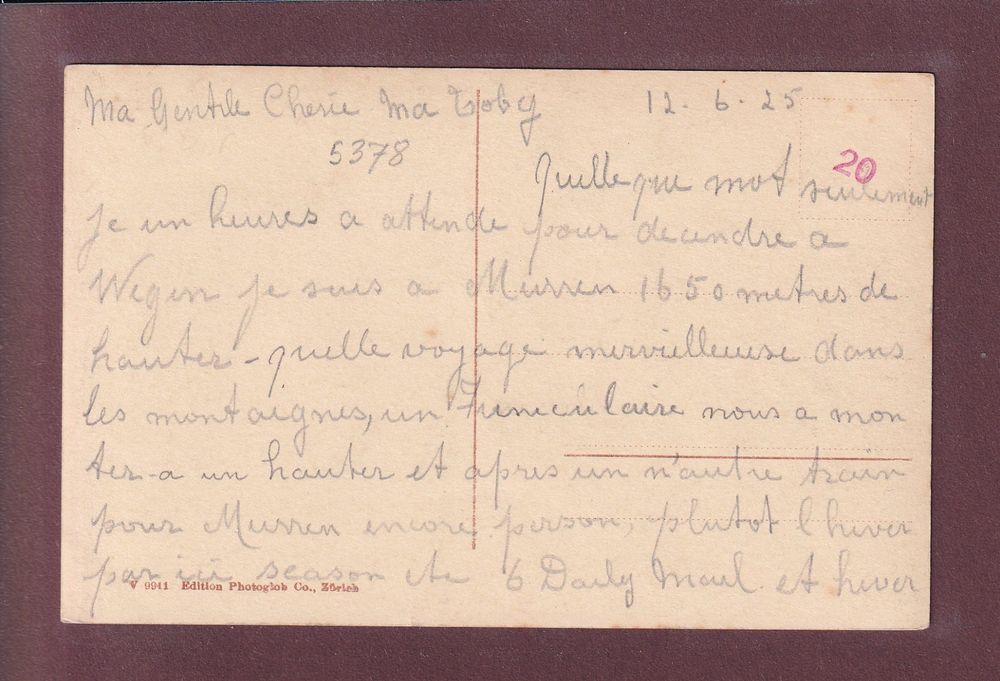 Ma Gentile Cherie Ma Toby 12. 6. 25
5378
20
Quelle que mot seulement
Je un heures a attende pour decendre a
Wegen je suis a Murren 1650 metres de
hauter - quelle voyage mervielleuse dans
les montaignes, un Funiculaire nous a mon
ter - a un hauter et apres un n'autre train
pour Murren encore person, plutot l hiver
par ici season ete 6 Daily Mail et hiver
V 9941 Edition Photoglob Co., Zürich